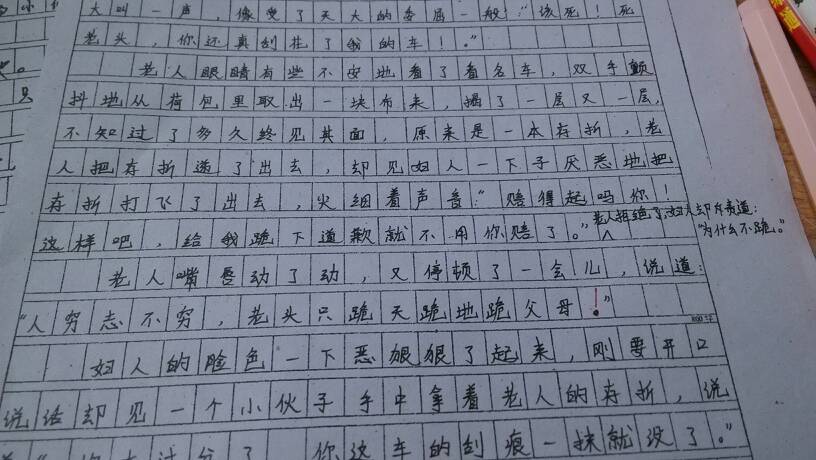 大叫一声，像受了天大的委屈一般：“该死！死
老头，你还真刮花了我的车！”
老人眼睛有些不安地看了看名车，双手颤
抖地从荷包里取出一块布来，掀了一层又一层，
不知过了多久终见其面，原来是一本存折，老
人把存折递了出去，却见妇人一下子厌恶地把
存折打飞了出去，尖细着声音：“赔得起吗你！
这样吧，给我跪下道歉就不用你赔了。”
老人拒绝了，妇人却斥责道：
“为什么不跪。”
老人嘴唇动了动，又停顿了一会儿，说道：
“人穷志不穷，老头只跪天跪地跪父母！”
800字
妇人的脸色一下恶狠狠了起来，刚要开口
说话却见一个小伙子手中拿着老人的存折，说
你这车的刮痕一抹就没了。”